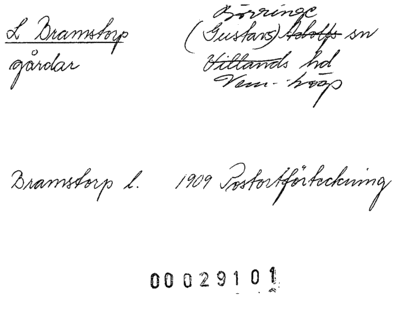 L Bramstorp
gårdar
Börringe
(Gustavs) Adolfs sn
Villands hd
Vem.-hög
Bramstorp l. 1909 Postortförteckning
00029101